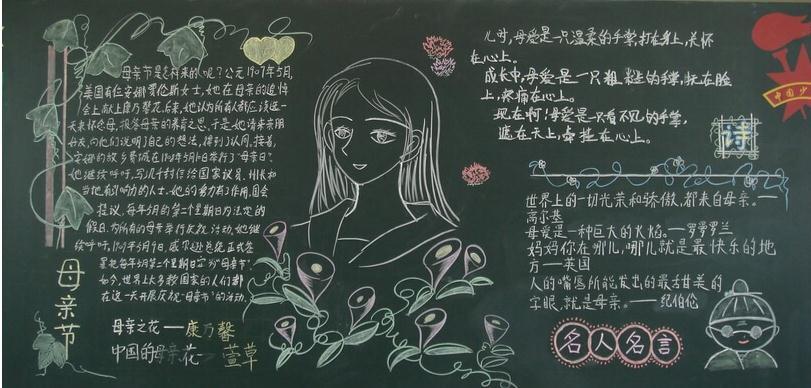 母亲节是怎样来的呢？公元1907年5月，
美国有位安娜
她在母亲的追悼
会上献上康乃馨花。后来，她认为所有人都应该选一
天来怀念母，报答母亲的养育之恩。于是，她请来亲朋
好友，向他们说明了自己的想法，得到了认同。接着，
安娜的故乡费城在
举行了“母亲日”。
她继续呼吁，写几千封信给国家议员、州长和
当地有影响力的人士。她的努力有了作用，国会
提议，每年5月的第二个星期日为法定的
假日，为所有的母亲举行庆祝活动。她继
续呼吁，
正式签
署把每年5月第二个星期日定为“母亲节”。
如今，世界上大多数国家的人们都
在这一天开展庆祝“母亲节”的活动。
母亲节
母亲之花——康乃馨
中国的母亲花——萱草
儿时，母爱是一只温柔的手掌，打在身上，关怀
在心上。
成长中，母爱是一只粗糙的手掌，抚在脸
上，疼痛在心上。
现在啊！母爱是一只看不见的手掌，
遮在天上，牵挂在心上。
诗
中国少
世界上的一切光荣和骄傲，都来自母亲。——
高尔基
母爱是一种巨大的火焰。——罗曼罗兰
妈妈你在哪儿，哪儿就是最快乐的地
方——英国
人的嘴唇所能发出的最甜美的
字眼，就是母亲。——纪伯伦
名人名言